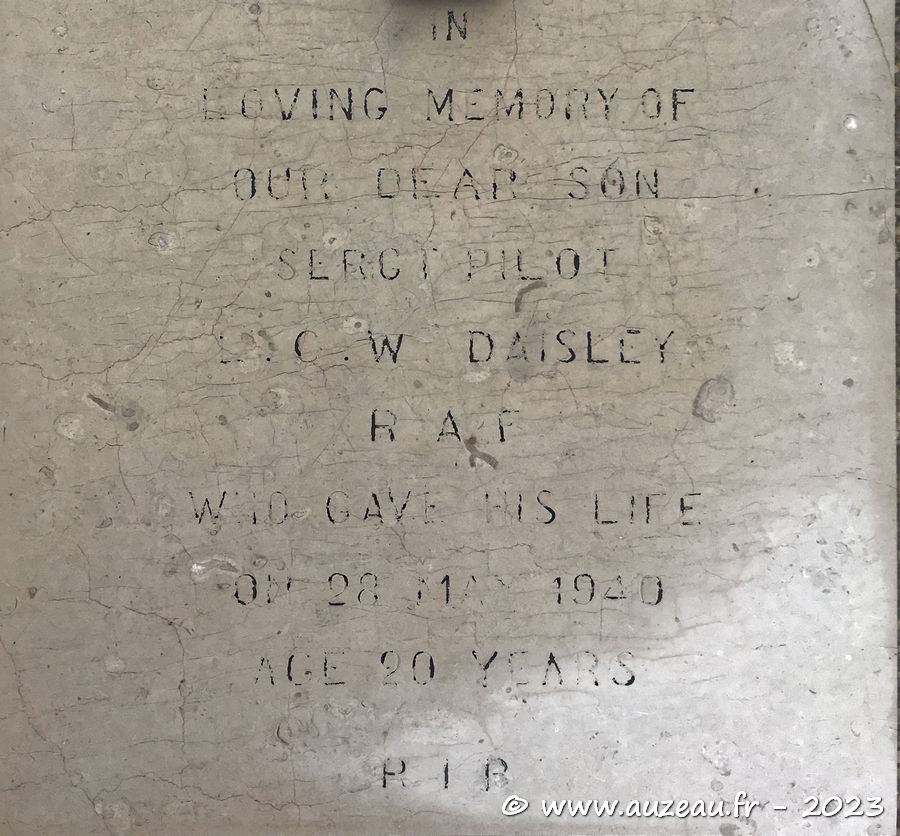 IN
LOVING MEMORY OF
OUR DEAR SON
SERGT PILOT
L.C.W DAISLEY
R A F
WHO GAVE HIS LIFE
ON 28 MAY 1940
AGE 20 YEARS
R I P
© www.auzeau.fr - 2023